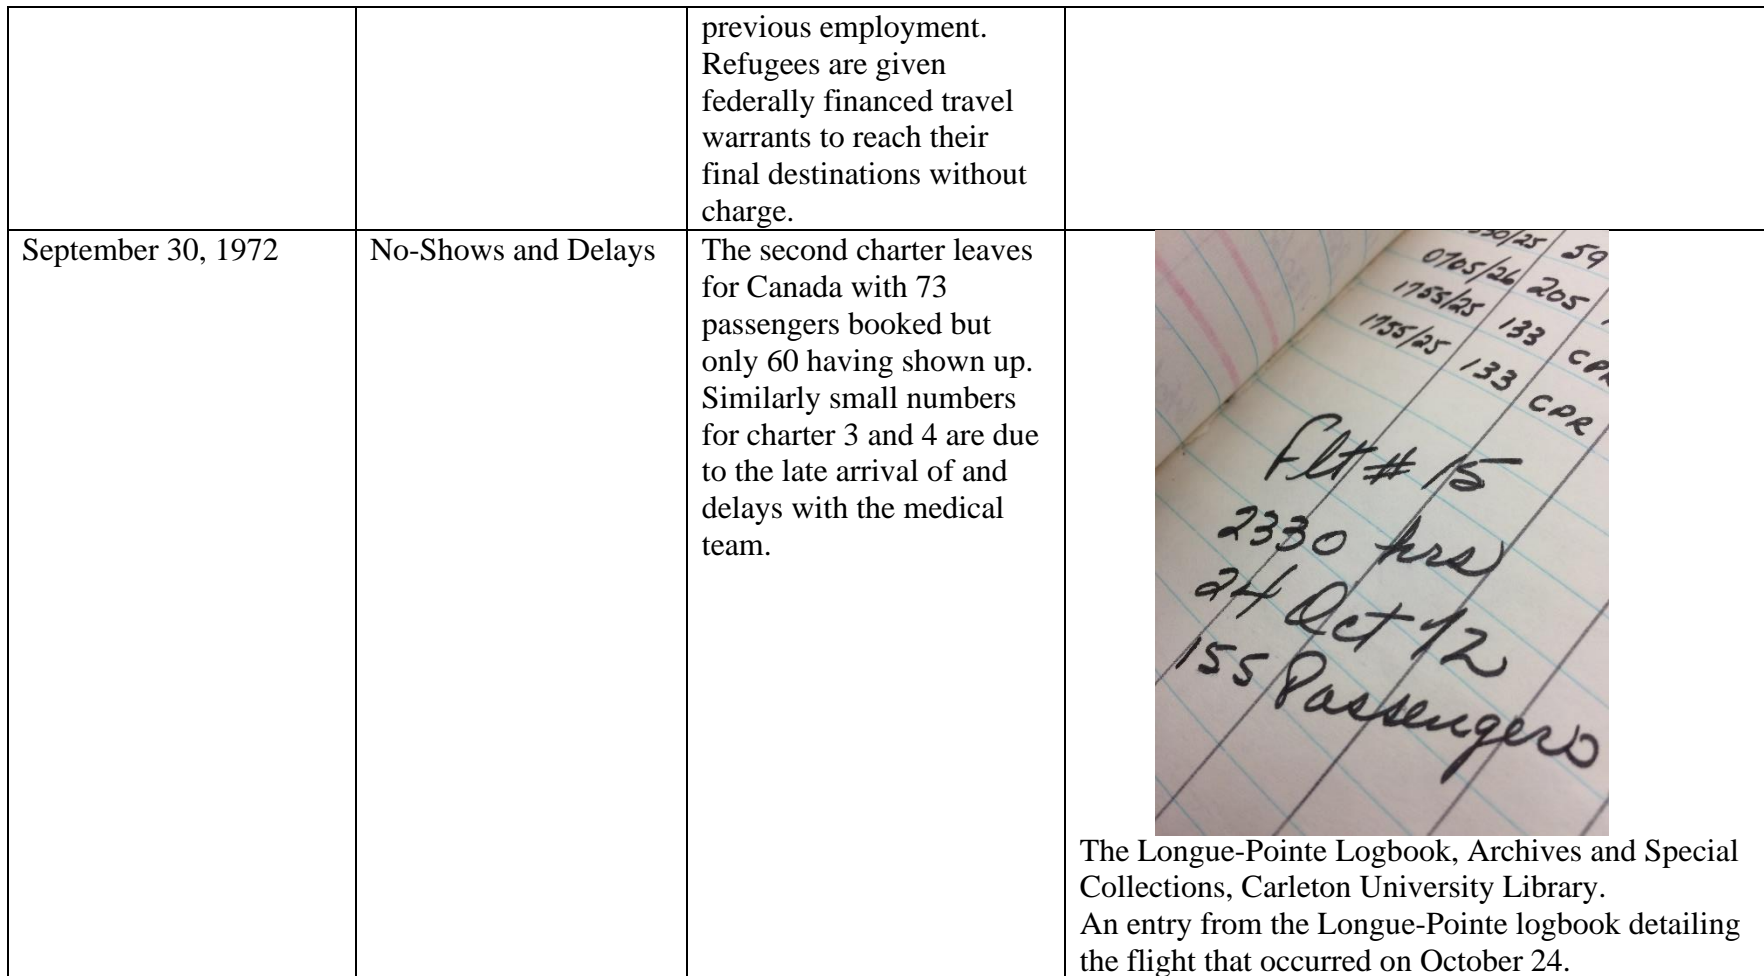 previous employment.
Refugees are given
federally financed travel
warrants to reach their
final destinations without
charge.
September 30, 1972
No-Shows and Delays
The second charter leaves
for Canada with 73
passengers booked but
only 60 having shown up.
Similarly small numbers
for charter 3 and 4 are due
to the late arrival of and
delays with the medical
team.
59
0705/26 205
1755/25 133
1755/25 133 CPR
Flt # 15
2330 hrs
24 Oct 72
155 Passengers
The Longue-Pointe Logbook, Archives and Special
Collections, Carleton University Library.
An entry from the Longue-Pointe logbook detailing
the flight that occurred on October 24.